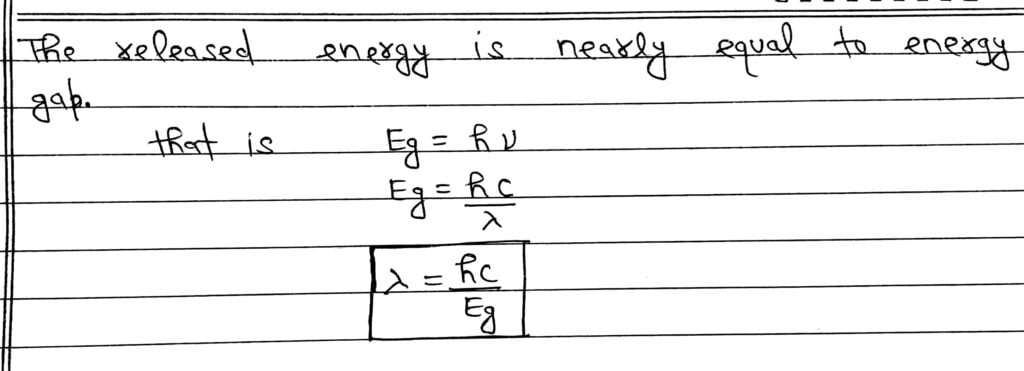 The released energy is nearly equal to energy
gap.
that is Eg = hν
Eg = hc/λ
λ = hc/Eg